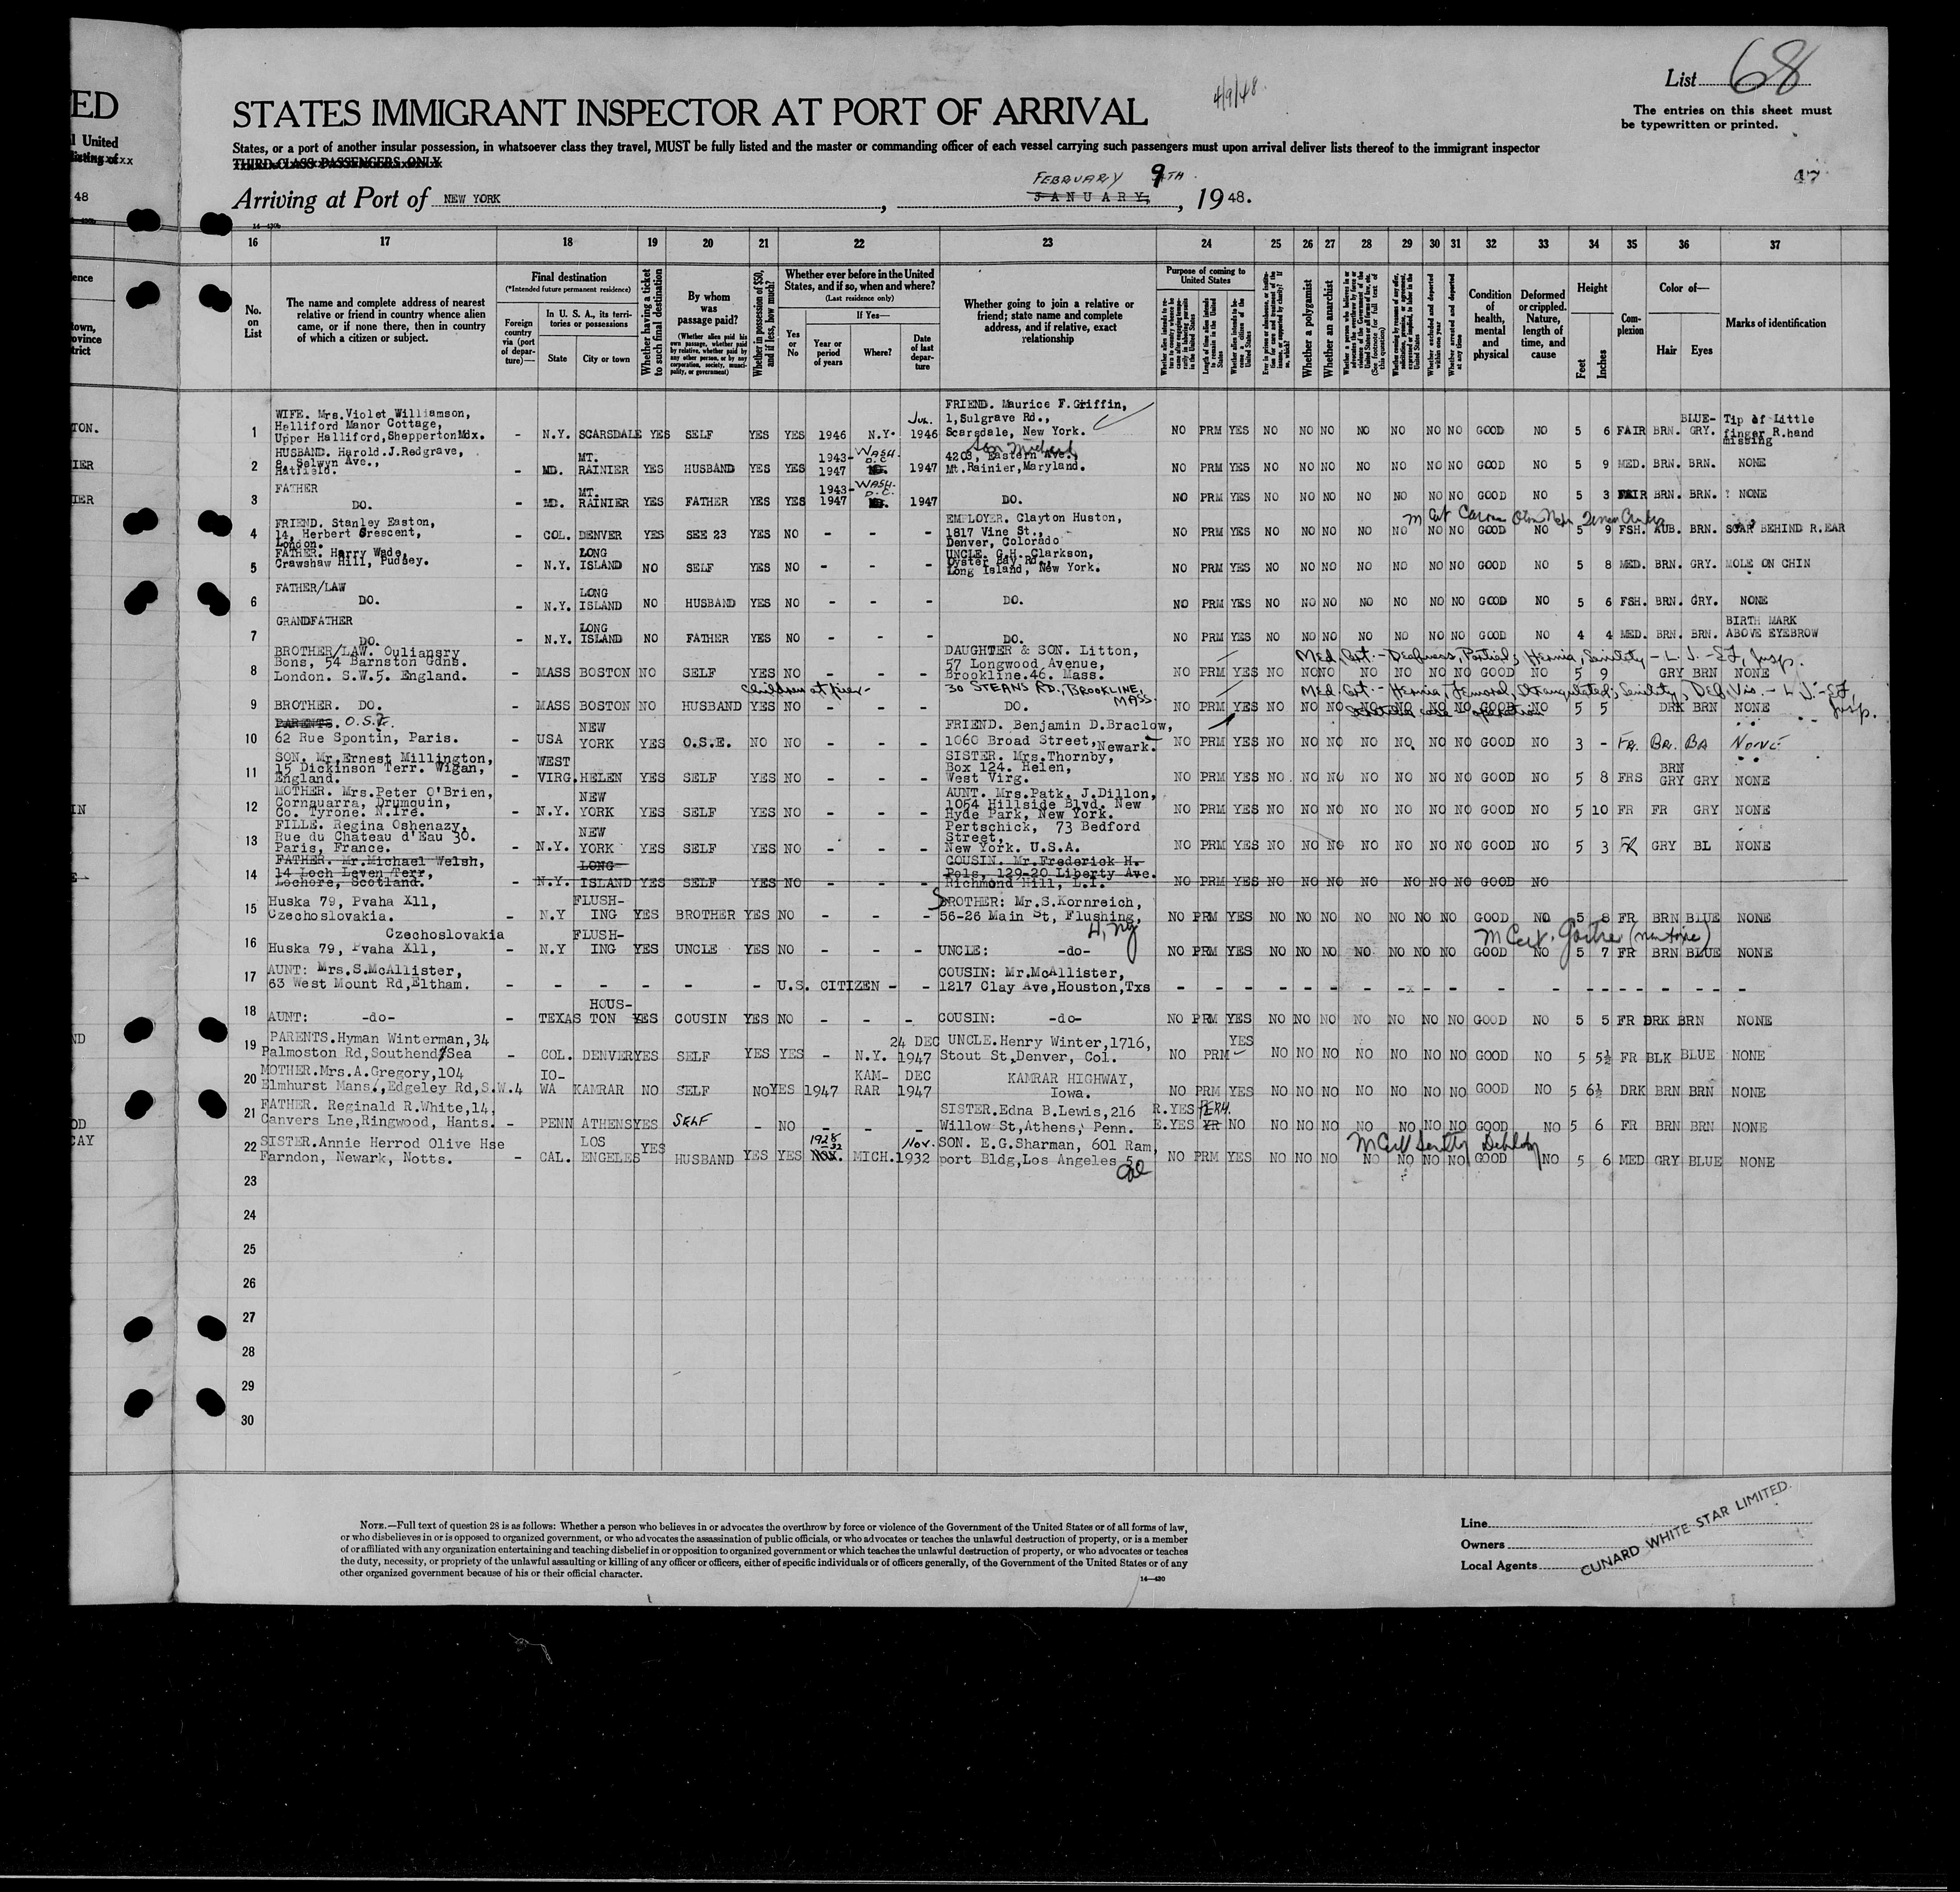 ED
l United
48
ence
town,
ovince
trict
TON.
IER
IER
IN
E
ND
OD
CAY
List 68
The entries on this sheet must
be typewritten or printed.
4/9/48
STATES IMMIGRANT INSPECTOR AT PORT OF ARRIVAL
States, or a port of another insular possession, in whatsoever class they travel, MUST be fully listed and the master or commanding officer of each vessel carrying such passengers must upon arrival deliver lists thereof to the immigrant inspector
THIRD-CLASS PASSENGERS ONLY
47
FEBRUARY 9TH
Arriving at Port of NEW YORK, JANUARY, 1948.
16 17 18 19 20 21 22 23 24 25 26 27 28 29 30 31 32 33 34 35 36 37
No. on List
The name and complete address of nearest relative or friend in country whence alien came, or if none there, then in country of which a citizen or subject.
Final destination
(*Intended future permanent residence)
Foreign country via (port of departure)—
In U. S. A., its territories or possessions
State
City or town
Whether having a ticket to such final destination
By whom was passage paid?
(Whether alien paid his own passage, whether paid by relative, whether paid by any other person, or by any corporation, society, municipality, or government)
Whether in possession of $50, and if less, how much?
Whether ever before in the United States, and if so, when and where?
(Last residence only)
Yes or No
If Yes—
Year or period of years
Where?
Date of last departure
Whether going to join a relative or friend; state name and complete address, and if relative, exact relationship
Purpose of coming to United States
Whether a polygamist
Whether an anarchist
Condition of health, mental and physical
Deformed or crippled. Nature, length of time, and cause
Height
Feet
Inches
Complexion
Color of—
Hair
Eyes
Marks of identification
WIFE. Mrs.Violet Williamson, FRIEND. Maurice F.Griffin,
Halliford Manor Cottage, Jul. 1,Sulgrave Rd., BLUE- Tip of Little
1 Upper Halliford,Shepperton Mdx. - N.Y. SCARSDALE YES SELF YES YES 1946 N.Y. 1946 Scarsdale, New York. NO PRM YES NO NO NO NO NO NO NO GOOD NO 5 6 FAIR BRN. GRY. finger R.hand missing
HUSBAND. Harold.J.Redgrave, MT. 1943- WASH. D.C. Son Michael
8, Selwyn Ave., 4203, Eastern Ave.,
2 Hatfield. - MD. RAINIER YES HUSBAND YES YES 1947 1947 Mt.Rainier,Maryland. NO PRM YES NO NO NO NO NO NO NO GOOD NO 5 9 MED. BRN. BRN. NONE
FATHER MT. 1943- WASH. D.C.
3 DO. - MD. RAINIER YES FATHER YES YES 1947 1947 DO. NO PRM YES NO NO NO NO NO NO NO GOOD NO 5 3 FAIR BRN. BRN. NONE
FRIEND. Stanley Easton, EMPLOYER. Clayton Huston,
4 14, Herbert Crescent, - COL. DENVER YES SEE 23 YES NO - - - 1817 Vine St., NO PRM YES NO NO NO NO NO NO NO GOOD NO 5 9 FSH. AUB. BRN. SCAR BEHIND R.EAR
London. Denver, Colorado
FATHER. Harry Wade, LONG UNCLE. G.H. Clarkson,
5 Crawshaw Hill, Pudsey. - N.Y. ISLAND NO SELF YES NO - - - Oyster Bay Rd., NO PRM YES NO NO NO NO NO NO NO GOOD NO 5 8 MED. BRN. GRY. MOLE ON CHIN
Long Island, New York.
FATHER/LAW LONG
6 DO. - N.Y. ISLAND NO HUSBAND YES NO - - - DO. NO PRM YES NO NO NO NO NO NO NO GOOD NO 5 6 FSH. BRN. GRY. NONE
GRANDFATHER LONG BIRTH MARK
7 DO. - N.Y. ISLAND NO FATHER YES NO - - - DO. NO PRM YES NO NO NO NO NO NO NO GOOD NO 4 4 MED. BRN. BRN. ABOVE EYEBROW
BROTHER/LAW. Ouliansry DAUGHTER & SON. Litton, Med. Cert.- Deafness, Partial; Hernia, Senility - L.J.-EJ, Insp.
Bons, 54 Barnston Gdns. 57 Longwood Avenue,
8 London. S.W.5. England. - MASS BOSTON NO SELF YES NO - - - Brookline.46. Mass. NO PRM YES NO NO NO NO NO NO NO GOOD NO 5 9 GRY BRN NONE
children at pier- 30 STEANS RD., BROOKLINE, MASS. Med. Cert.- Hernia, Femoral, Strangulated; Senility, Def. Vis.- L.J.-EJ, Insp.
9 BROTHER. DO. - MASS BOSTON NO HUSBAND YES NO - - - DO. NO PRM YES NO NO NO NO NO NO NO GOOD NO 5 5 DRK BRN NONE
PARENTS. O.S.E. NEW FRIEND. Benjamin D.Braclow,
10 62 Rue Spontin, Paris. - USA YORK YES O.S.E. NO NO - - - 1060 Broad Street, Newark. NO PRM YES NO NO NO NO NO NO NO GOOD NO 3 - Fr. Br. Br NONE
SON. Mr.Ernest Millington, WEST SISTER. Mrs.Thornby,
15 Dickinson Terr. Wigan, Box 124. Helen, BRN
11 England. - VIRG. HELEN YES SELF YES NO - - - West Virg. NO PRM YES NO NO NO NO NO NO NO GOOD NO 5 8 FRS GRY GRY NONE
MOTHER. Mrs.Peter O'Brien, NEW AUNT. Mrs.Patk. J.Dillon,
12 Cornauarra, Drumquin, - N.Y. YORK YES SELF YES NO - - - 1054 Hillside Blvd. New NO PRM YES NO NO NO NO NO NO NO GOOD NO 5 10 FR FR GRY NONE
Co. Tyrone. N.Ire. Hyde Park, New York.
FILLE. Regina Oshenazy, NEW Pertschick, 73 Bedford
Rue du Chateau d'Eau 30. Street,
13 Paris, France. - N.Y. YORK YES SELF YES NO - - - New York. U.S.A. NO PRM YES NO NO NO NO NO NO NO GOOD NO 5 3 FR GRY BL NONE
FATHER. Mr.Michael Welsh, LONG COUSIN. Mr.Frederick H.
14 14 Loch Leven Terr, - N.Y. ISLAND YES SELF YES NO - - - Pels, 129-20 Liberty Ave. NO PRM YES NO NO NO NO NO NO NO GOOD NO
Lochore, Scotland. Richmond Hill, L.I.
Huska 79, Pvaha X11, FLUSH- BROTHER: Mr.S.Kornreich,
15 Czechoslovakia. - N.Y ING YES BROTHER YES NO - - - 56-26 Main St, Flushing, NO PRM YES NO NO NO NO NO NO NO GOOD NO 5 8 FR BRN BLUE NONE
Czechoslovakia FLUSH- M Cert. Goitre (non toxic)
16 Huska 79, Pvaha X11, - N.Y ING YES UNCLE YES NO - - - UNCLE: -do- NO PRM YES NO NO NO NO NO NO NO GOOD NO 5 7 FR BRN BLUE NONE
AUNT: Mrs.S.McAllister, COUSIN: Mr.McAllister,
17 63 West Mount Rd,Eltham. - - - - - - U.S. CITIZEN - - 1217 Clay Ave,Houston,Txs - - - - - - - - - - - - - - - - - -
HOUS-
18 AUNT: -do- - TEXAS TON YES COUSIN YES NO - - - COUSIN: -do- NO PRM YES NO NO NO NO NO NO NO GOOD NO 5 5 FR DRK BRN NONE
PARENTS.Hyman Winterman,34 24 DEC UNCLE.Henry Winter,1716, YES
19 Palmoston Rd,Southend/Sea - COL. DENVER YES SELF YES YES - N.Y. 1947 Stout St,Denver, Col. NO PRM NO NO NO NO NO NO NO GOOD NO 5 5½ FR BLK BLUE NONE
MOTHER.Mrs.A.Gregory,104 IO- KAM- DEC KAMRAR HIGHWAY,
20 Elmhurst Mans.,Edgeley Rd,S.W.4 WA KAMRAR NO SELF NO YES 1947 RAR 1947 Iowa. NO PRM YES NO NO NO NO NO NO NO GOOD NO 5 6½ DRK BRN BRN NONE
FATHER. Reginald R.White,14, SISTER.Edna B.Lewis,216 R.YES PERM.
21 Canvers Lne,Ringwood, Hants. - PENN ATHENS YES SELF - NO - - - Willow St,Athens, Penn. E.YES YR NO NO NO NO NO NO NO NO GOOD NO 5 6 FR BRN BRN NONE
SISTER.Annie Herrod Olive Hse LOS 1928 -32 Nov. SON. E.G.Sharman, 601 Ram,
22 Farndon, Newark, Notts. - CAL. ENGELES YES HUSBAND YES YES MICH. 1932 port Bldg,Los Angeles 5, Cal NO PRM YES NO NO NO NO NO NO NO GOOD NO 5 6 MED GRY BLUE NONE
23
24
25
26
27
28
29
30
NOTE.—Full text of question 28 is as follows: Whether a person who believes in or advocates the overthrow by force or violence of the Government of the United States or of all forms of law,
or who disbelieves in or is opposed to organized government, or who advocates the assassination of public officials, or who advocates or teaches the unlawful destruction of property, or is a member
of or affiliated with any organization entertaining and teaching disbelief in or opposition to organized government or which teaches the unlawful destruction of property, or who advocates or teaches
the duty, necessity, or propriety of the unlawful assaulting or killing of any officer or officers, either of specific individuals or of officers generally, of the Government of the United States or of any
other organized government because of his or their official character.
14—430
Line
Owners
Local Agents
CUNARD WHITE STAR LIMITED.